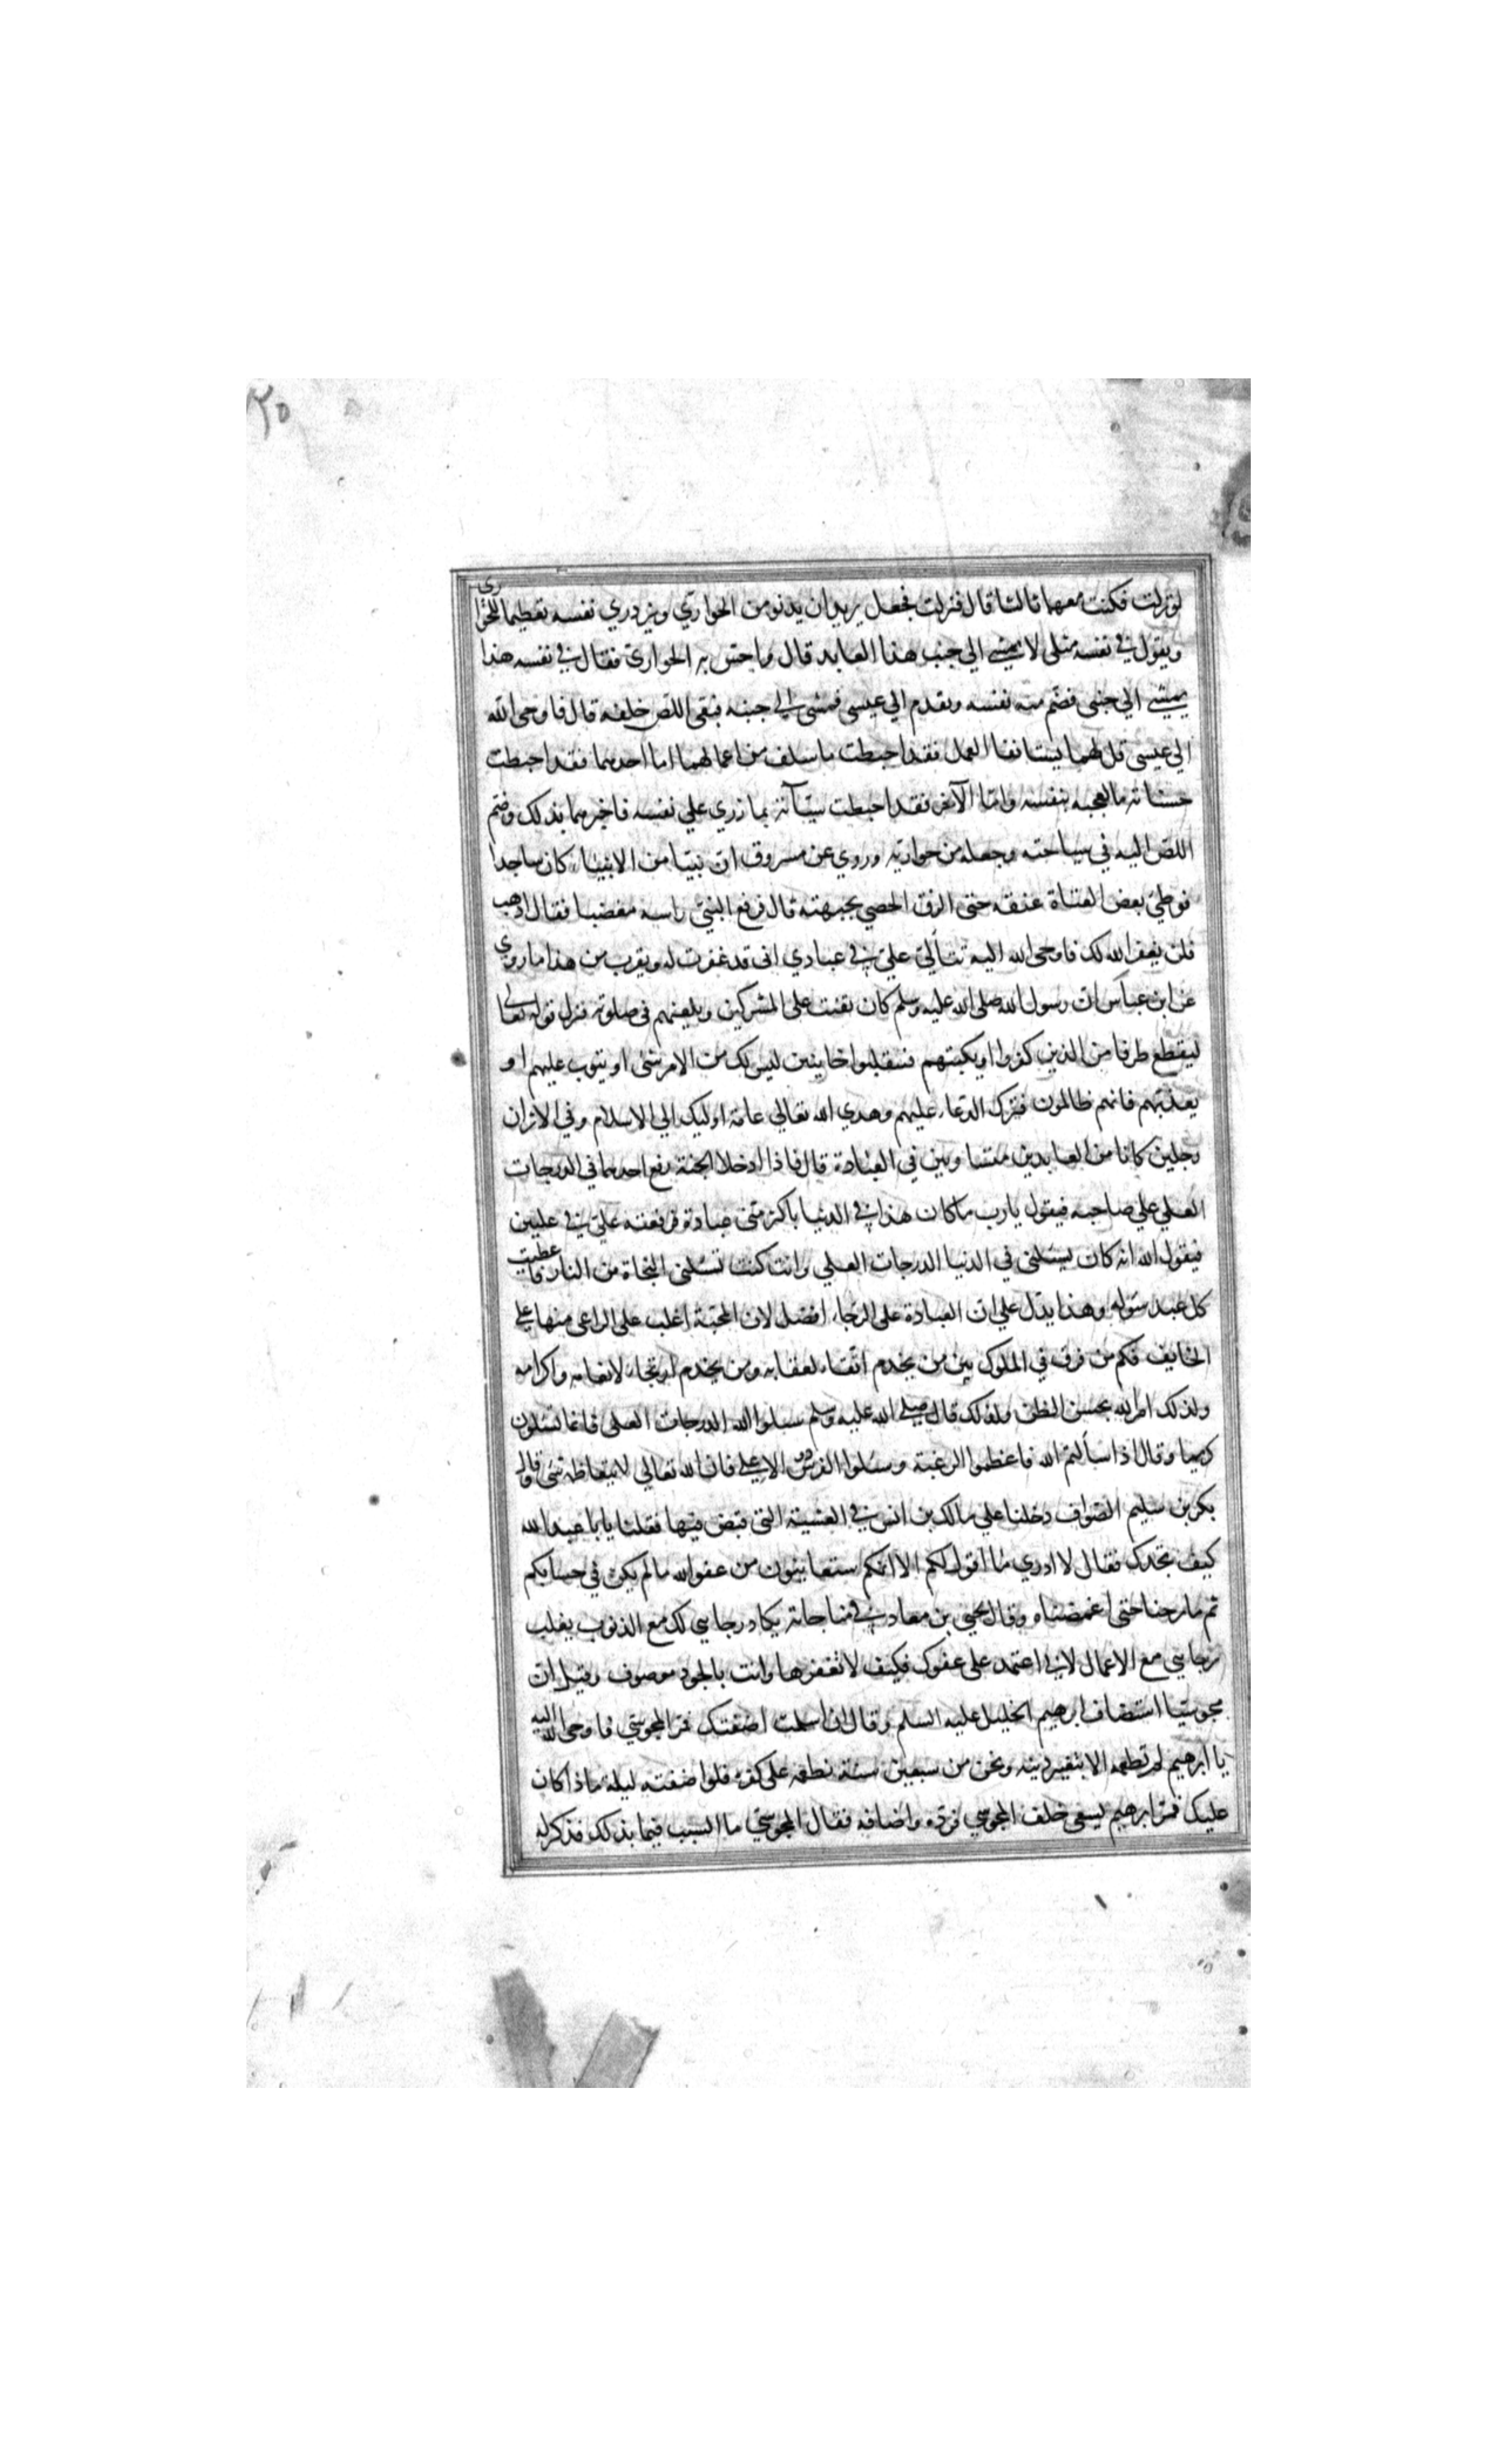 ٢٥
لو نزلت فكنت معهما ثالثا قال فنزلت فجعل يريد ان يدنو من الحواري ويزدري نفسه تعظيما للحواري
ويقول في نفسه مثلي لا يمشي الي جنب هذا العابد قال واحس به الحواري فقال في نفسه هذا
يمشي الي جنبي فضم منه نفسه وتقدم الي عيسى فمشى الي جنبه فبقي اللص خلفه قال فاوحى الله
الي عيسى قل لهما يستانفا العمل فقد احبطت ما سلف من اعمالهما اما احدهما فقد احبطت
حسناته مالعجبه بنفسه وامّا الآخر فقد احبطت سيّآته بما زري علي نفسه فاخبرهما بذلك وضم
اللص اليه في سياحته وجعله من حواريه وروي عن مسروق ان نبيا من الانبياء كان ساجدا
فوطئ بعض العتاة عنقه حتى الزق الحصي بجبهته قال فرفع النبي راسه مغضبا فقال اذهب
فلن يغفر الله لك فاوحى الله اليه تتألى علي في عبادي انى قد غفرت له ويقرب من هذا ما روي
عن ابن عباس ان رسول الله صلى الله عليه وسلم كان يقنت على المشركين ويلعنهم في صلوته فنزل قوله تعالى
ليقطع طرفا من الذين كفروا او يكبتهم فينقلبوا خايبين ليس لك من الامر شئ او يتوب عليهم او
يعذبهم فانهم ظالمون فترك الدعاء عليهم وهدي الله تعالى عامة اوليك الي الاسلام وفي الاثر ان
رجلين كانا من العابدين متساويين في العبادة قال فاذا ادخلا الجنة رفع احدهما في الدرجات
العلي علي صاحبه فيقول يارب ما كان هذا في الدنيا باكثر منى عبادة فرفعته علي في عليين
فيقول الله انه كان يسئلني في الدنيا الدرجات العلي وانت كنت تسئلني النجاة من النار فاعطيت
كل عبد سئوله وهذا يدل علي ان العبادة على الرجاء افضل لان المحبة اغلب على الراجي منها علي
الخايف فكم من فرق في الملوك بين من يخدم اتقاء لعقابه ومن يخدم ارتجاء لانعامه واكرامه
ولذلك امر الله بحسن الظن ولذلك قال صلى الله عليه وسلم سلوا الله الدرجات العلى فانما تسئلون
كريما وقال اذا سألتم الله فاعظموا الرغبة وسئلوا الفردوس الاعلي فان الله تعالي لا يتعاظمه شئ وقال
بكر بن سليم الصواف دخلنا علي مالك بن انس في العشية التى قبض فيها فقلنا يا با عبد الله
كيف تجدك فقال لا ادري ما اقول لكم الا انكم ستعاينون من عفو الله ما لم يكن في حسابكم
ثم ما برحنا حتى اغمضناه وقال يحيى بن معاد في مناجاته يكاد رجايي لك مع الذنوب يغلب
رجايي مع الاعمال لاني اعتمد على عفوك فكيف لا تغفرها وانت بالجود موصوف وقيل ان
مجوسيا استضاف ابرهيم الخليل عليه السلم وقال ان اسلمت اضفتك فمر المجوسي فاوحى الله اليه
يا ابرهيم لم تطعمه الا بتغيير دينه ونحن من سبعين سنة نطعمه على كفره فلو اضفته ليلة ماذا كان
عليك فمر ابرهيم يسعى خلف المجوسي فرده واضافه فقال المجوسي ما السبب فيما بذلك فذكر له